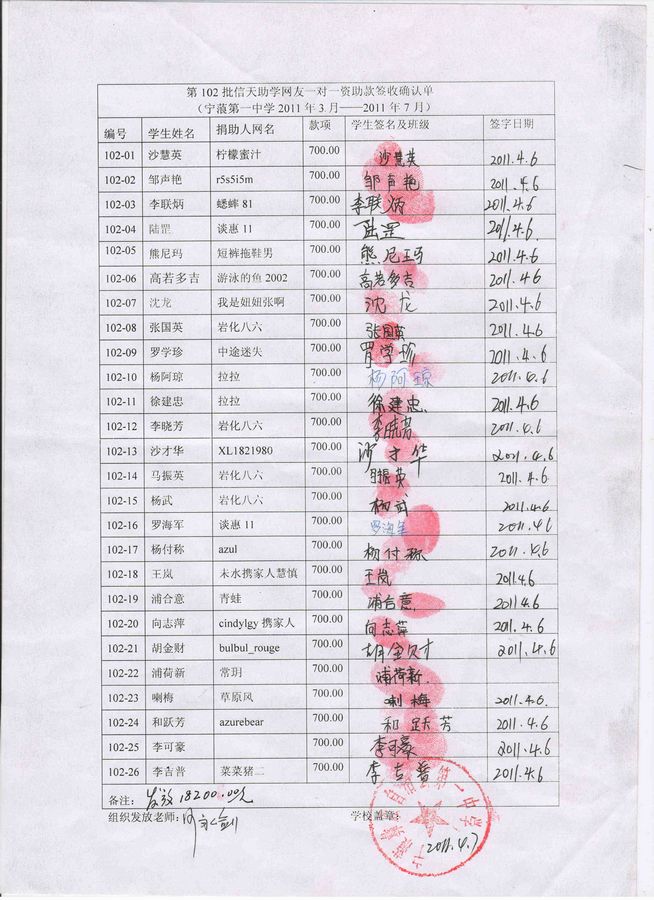 第 102 批信天助学网友一对一资助款签收确认单
（宁蒗第一中学 2011 年 3 月——2011 年 7 月）
编号 学生姓名 捐助人网名 款项 学生签名及班级 签字日期
102-01 沙慧英 柠檬蜜汁 700.00 沙慧英 2011.4.6
102-02 邹声艳 r5s5i5m 700.00 邹声艳 2011.4.6
102-03 李联炳 蟋蟀 81 700.00 李联炳 2011.4.6
102-04 陆罡 谈惠 11 700.00 陆罡 2011.4.6
102-05 熊尼玛 短裤拖鞋男 700.00 熊尼玛 2011.4.6
102-06 高若多吉 游泳的鱼 2002 700.00 高若多吉 2011.4.6
102-07 沈龙 我是妞妞张啊 700.00 沈龙 2011.4.6
102-08 张国英 岩化八六 700.00 张国英 2011.4.6
102-09 罗学珍 中途迷失 700.00 罗学珍 2011.4.6
102-10 杨阿琼 拉拉 700.00 杨阿琼 2011.4.6
102-11 徐建忠 拉拉 700.00 徐建忠. 2011.4.6
102-12 李晓芳 岩化八六 700.00 李晓芳 2011.4.6
102-13 沙才华 XL1821980 700.00 沙才华 2011.4.6
102-14 马振英 岩化八六 700.00 马振英 2011.4.6
102-15 杨武 岩化八六 700.00 杨武 2011.4.6
102-16 罗海军 谈惠 11 700.00 罗海军 2011.4.6
102-17 杨付称 azul 700.00 杨付称 2011.4.6
102-18 王岚 未水携家人慧慎 700.00 王岚 2011.4.6
102-19 浦合意 青蛙 700.00 浦合意 2011.4.6
102-20 向志萍 cindylgy 携家人 700.00 向志萍 2011.4.6
102-21 胡金财 bulbul_rouge 700.00 胡金财 2011.4.6
102-22 浦荷新 常玥 700.00 浦荷新.
102-23 喇梅 草原风 700.00 喇梅 2011.4.6.
102-24 和跃芳 azurebear 700.00 和跃芳 2011.4.6
102-25 李可豪 700.00 李可豪 2011.4.6
102-26 李吉普 菜菜猪二 700.00 李吉普 2011.4.6
备注： 发放18200.00元
组织发放老师： 学校盖章：
2011.4.7